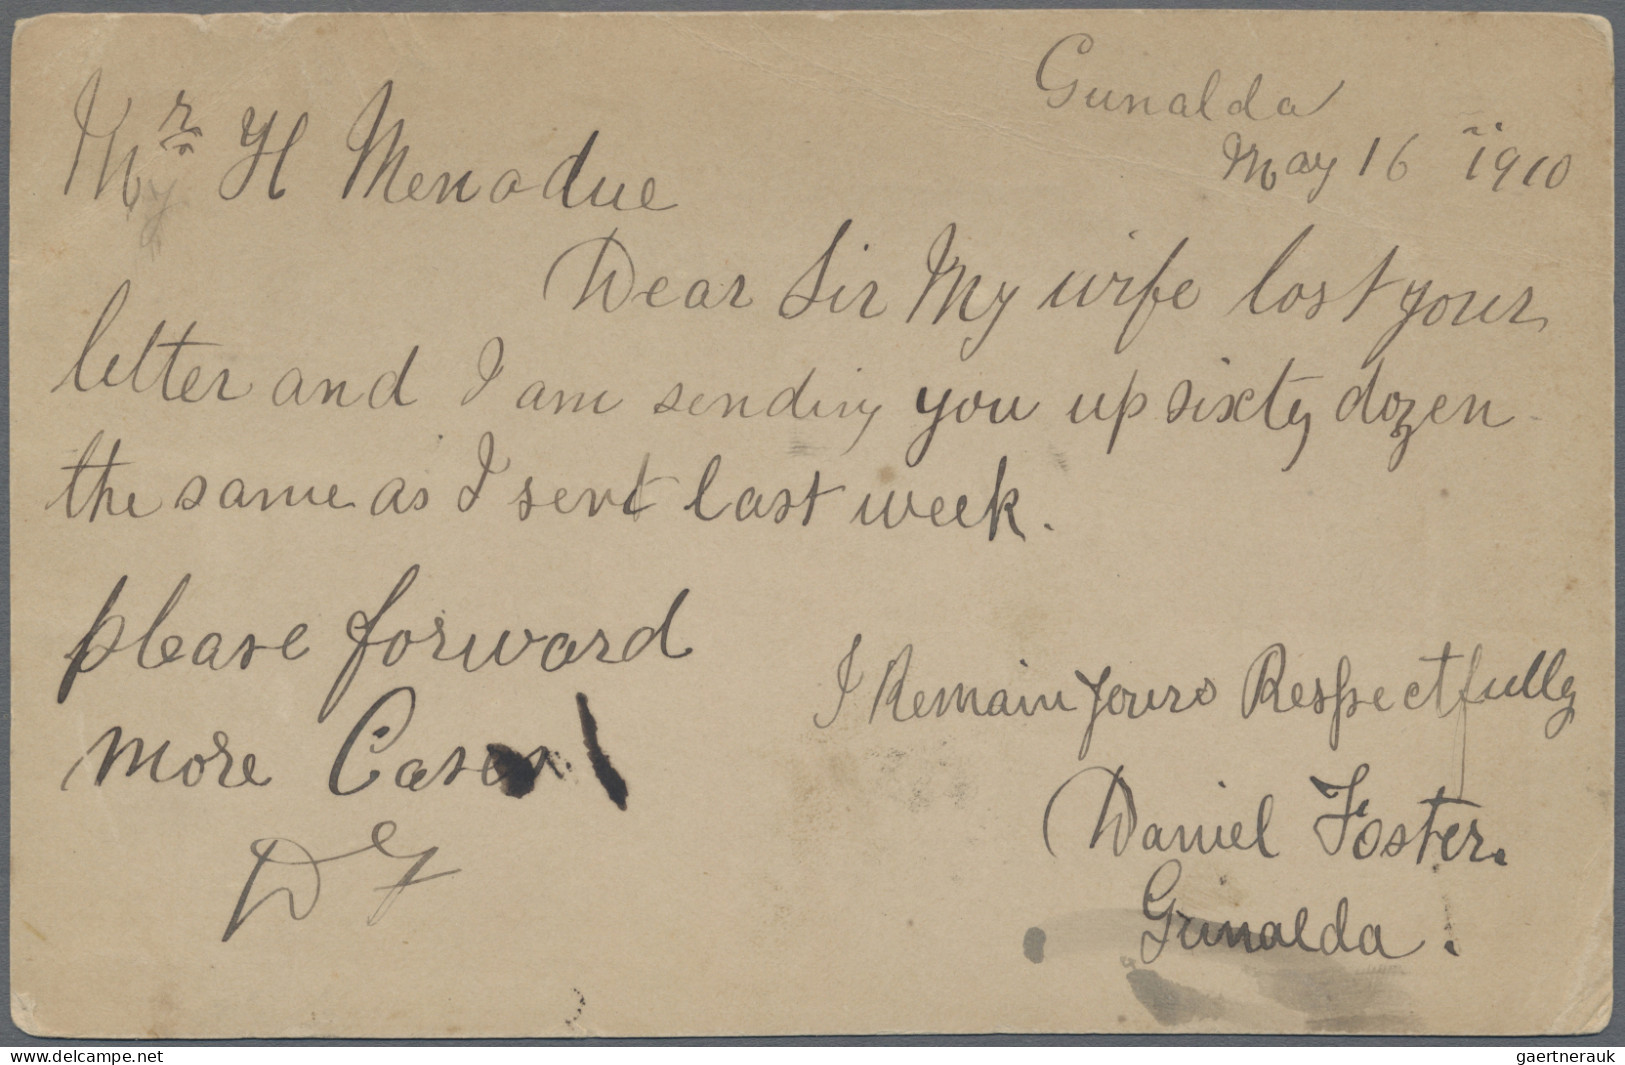 Gunalda
May 16 1910
Mr H Menadue
Dear Sir My wife lost your
letter and I am sending you up sixty dozen
the same as I sent last week.
please forward
more Cases
I Remain yours Respectfully
Daniel Foster.
D F
Gunalda.
www.delcampe.net
gaertnerauk